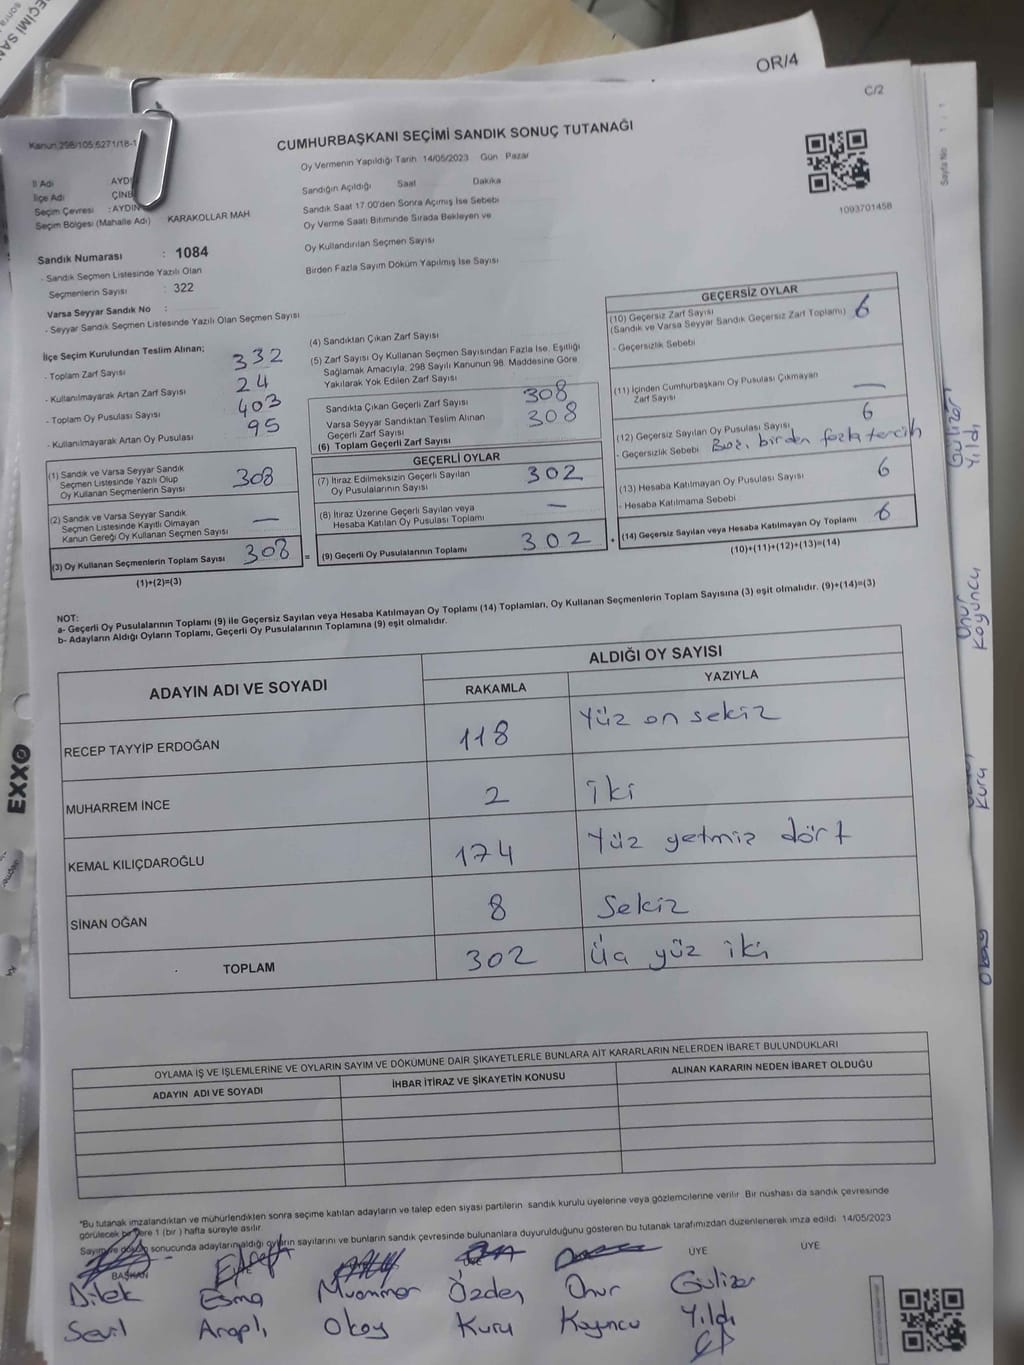 OR/4
C/2
Kanun 298/105;6271/18-1
CUMHURBAŞKANI SEÇİMİ SANDIK SONUÇ TUTANAĞI
Oy Vermenin Yapıldığı Tarih 14/05/2023 Gün Pazar
İl Adı AYD
İlçe Adı ÇİN
Seçim Çevresi : AYDIN
Seçim Bölgesi (Mahalle Adı) KARAKOLLAR MAH
Sandığın Açıldığı Saat Dakika
Sandık Saat 17.00'den Sonra Açımış İse Sebebi
Oy Verme Saati Bitiminde Sırada Bekleyen ve
Oy Kullandırılan Seçmen Sayısı
Birden Fazla Sayım Döküm Yapılmış İse Sayısı
1093701458
Sayfa No 1 / 1
Sandık Numarası : 1084
- Sandık Seçmen Listesinde Yazılı Olan
Seçmenlerin Sayısı : 322
Varsa Seyyar Sandık No :
- Seyyar Sandık Seçmen Listesinde Yazılı Olan Seçmen Sayısı
İlçe Seçim Kurulundan Teslim Alınan;
- Toplam Zarf Sayısı 332
- Kullanılmayarak Artan Zarf Sayısı 24
- Toplam Oy Pusulası Sayısı 403
- Kullanılmayarak Artan Oy Pusulası 95
(1) Sandık ve Varsa Seyyar Sandık
Seçmen Listesinde Yazılı Olup
Oy Kullanan Seçmenlerin Sayısı 308
(2) Sandık ve Varsa Seyyar Sandık
Seçmen Listesinde Kayıtlı Olmayan
Kanun Gereği Oy Kullanan Seçmen Sayısı —
(3) Oy Kullanan Seçmenlerin Toplam Sayısı 308 =
(1)+(2)=(3)
(4) Sandıktan Çıkan Zarf Sayısı
(5) Zarf Sayısı Oy Kullanan Seçmen Sayısından Fazla İse, Eşitliği
Sağlamak Amacıyla, 298 Sayılı Kanunun 98. Maddesine Göre
Yakılarak Yok Edilen Zarf Sayısı
Sandıkta Çıkan Geçerli Zarf Sayısı 308
Varsa Seyyar Sandıktan Teslim Alınan
Geçerli Zarf Sayısı 308
(6) Toplam Geçerli Zarf Sayısı
GEÇERLİ OYLAR
(7) İtiraz Edilmeksizin Geçerli Sayılan
Oy Pusulalarının Sayısı 302
(8) İtiraz Üzerine Geçerli Sayılan veya
Hesaba Katılan Oy Pusulası Toplamı —
(9) Geçerli Oy Pusulalarının Toplamı 302 +
GEÇERSİZ OYLAR
(10) Geçersiz Zarf Sayısı
(Sandık ve Varsa Seyyar Sandık Geçersiz Zarf Toplamı) 6
- Geçersizlik Sebebi
(11) İçinden Cumhurbaşkanı Oy Pusulası Çıkmayan
Zarf Sayısı —
(12) Geçersiz Sayılan Oy Pusulası Sayısı 6
- Geçersizlik Sebebi birden fazla tercih
(13) Hesaba Katılmayan Oy Pusulası Sayısı 6
- Hesaba Katılmama Sebebi
(14) Geçersiz Sayılan veya Hesaba Katılmayan Oy Toplamı 6
(10)+(11)+(12)+(13)=(14)
NOT:
a- Geçerli Oy Pusulalarının Toplamı (9) ile Geçersiz Sayılan veya Hesaba Katılmayan Oy Toplamı (14) Toplamları, Oy Kullanan Seçmenlerin Toplam Sayısına (3) eşit olmalıdır. (9)+(14)=(3)
b- Adayların Aldığı Oyların Toplamı, Geçerli Oy Pusulalarının Toplamına (9) eşit olmalıdır.
ADAYIN ADI VE SOYADI ALDIĞI OY SAYISI
RAKAMLA YAZIYLA
RECEP TAYYİP ERDOĞAN 118 Yüz on sekiz
MUHARREM İNCE 2 İki
KEMAL KILIÇDAROĞLU 174 Yüz yetmiz dört
SİNAN OĞAN 8 Sekiz
TOPLAM 302 Üç yüz iki
OYLAMA İŞ VE İŞLEMLERİNE VE OYLARIN SAYIM VE DÖKÜMÜNE DAİR ŞİKAYETLERLE BUNLARA AİT KARARLARIN NELERDEN İBARET BULUNDUKLARI
ADAYIN ADI VE SOYADI İHBAR İTİRAZ VE ŞİKAYETİN KONUSU ALINAN KARARIN NEDEN İBARET OLDUĞU
*Bu tutanak imzalandıktan ve mühürlendikten sonra seçime katılan adayların ve talep eden siyasi partilerin sandık kurulu üyelerine veya gözlemcilerine verilir. Bir nüshası da sandık çevresinde
görülecek bir yere 1 (bir) hafta süreyle asılır.
Sayım ve döküm sonucunda adayların aldığı oyların sayılarını ve bunların sandık çevresinde bulunanlara duyurulduğunu gösteren bu tutanak tarafımızdan düzenlenerek imza edildi. 14/05/2023
BAŞKAN ÜYE ÜYE
Dilek Esma Muammer Özden Onur Gülizar
Sevil Araplı Okay Kuru Koyuncu Yıldı
EXXO
Gülizar
Yıldı
Onur
Koyuncu
Kuru
Okay